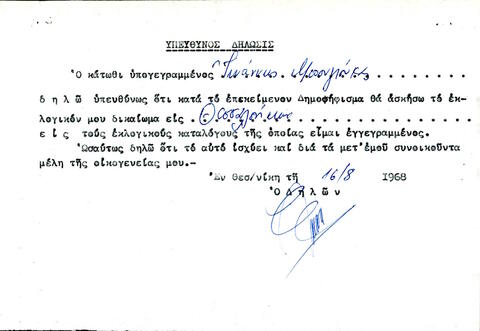 ΥΠΕΥΘΥΝΟΣ ΔΗΛΩΣΙΣ
Ὁ κάτωθι ὑπογεγραμμένος
δηλῶ ὑπευθύνως ὅτι κατά τό ἐπεκείμενον Δημοψήφισμα θά ἀσκήσω τό ἐκ-
λογικόν μου δικαίωμα εἰς Θεσσαλονίκην
εἰς τούς ἐκλογικούς καταλόγους τῆς ὁποίας εἶμαι ἐγγεγραμμένος.
Ὡσαύτως δηλῶ ὅτι τό αὐτό ἰσχύει καί διά τά μετ'ἐμοῦ συνοικοῦντα
μέλη τῆς οἰκογενείας μου.-
Ἐν Θεσ/νίκη τῇ 16/8 1968
Ὁ Δ η λ ῶ ν